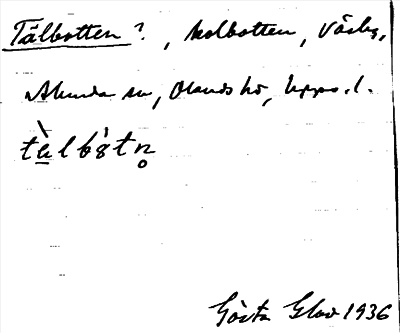 Tälbotten ?, kolbotten, Väsby,
Alunda sn, Olands hd, Upps. l.
tàlbòtn̥
Gösta Glad 1936